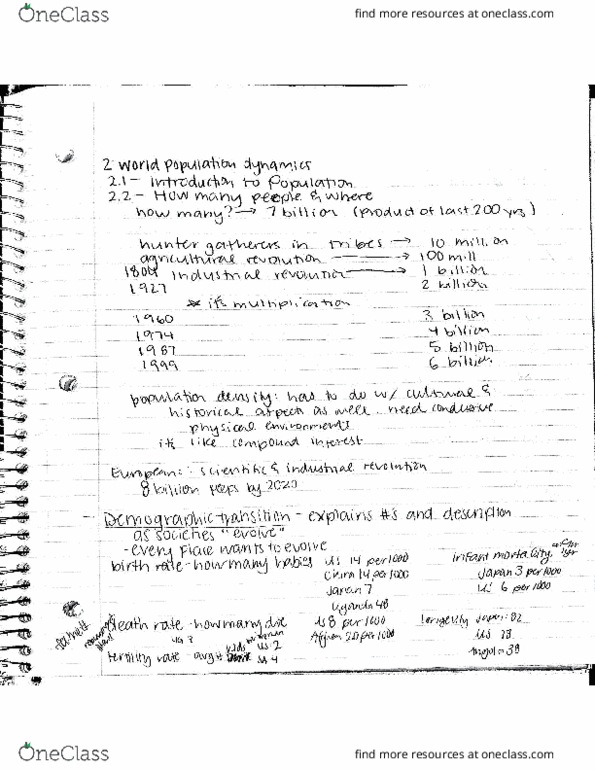 OneClass
find more resources at oneclass.com
2 World Population dynamics
2.1- Introduction to Population
2.2- How many people & where
how many? → 7 billion (product of last 200 yrs)
hunter gatherers in tribes → 10 million
agricultural revolution → 100 mill
1804 Industrial revolution → 1 billion
1927 2 billion
* it's multiplication
1960 3 billion
1974 4 billion
1987 5 billion
1999 6 billion
population density: has to do w/ cultural &
historical aspect as well need conducive
physical environments
it's like compound interest
European: scientific & industrial revolution
8 billion peeps by 2020
Demographic transition - explains #s and description
as societies "evolve"
- every place wants to evolve
birth rate - how many babies US 14 per 1000 infant mortality
China 14 per 1000 Japan 3 per 1000
Japan 7 US 6 per 1000
Uganda 48
death rate - how many die US 8 per 1000 Longevity Japan: 82
Afghan 20 per 1000 US 78
fertility rate - avg # kids US 2 Angola 38
OneClass
find more resources at oneclass.com